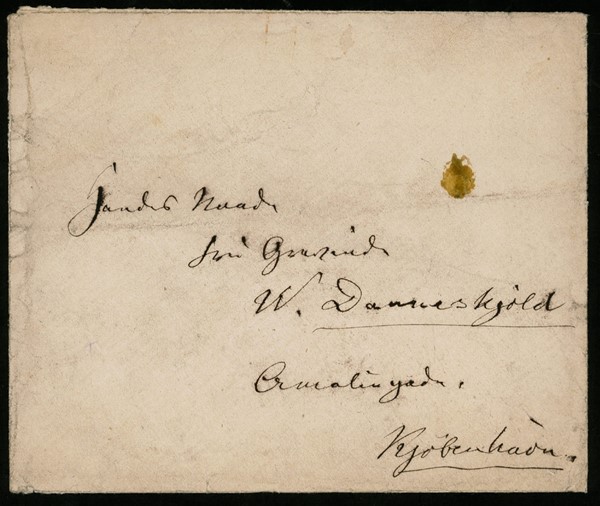 Hendes Naade
Fru Grevinde
W. Danneskjold
Amaliegade.
Kjøbenhavn.